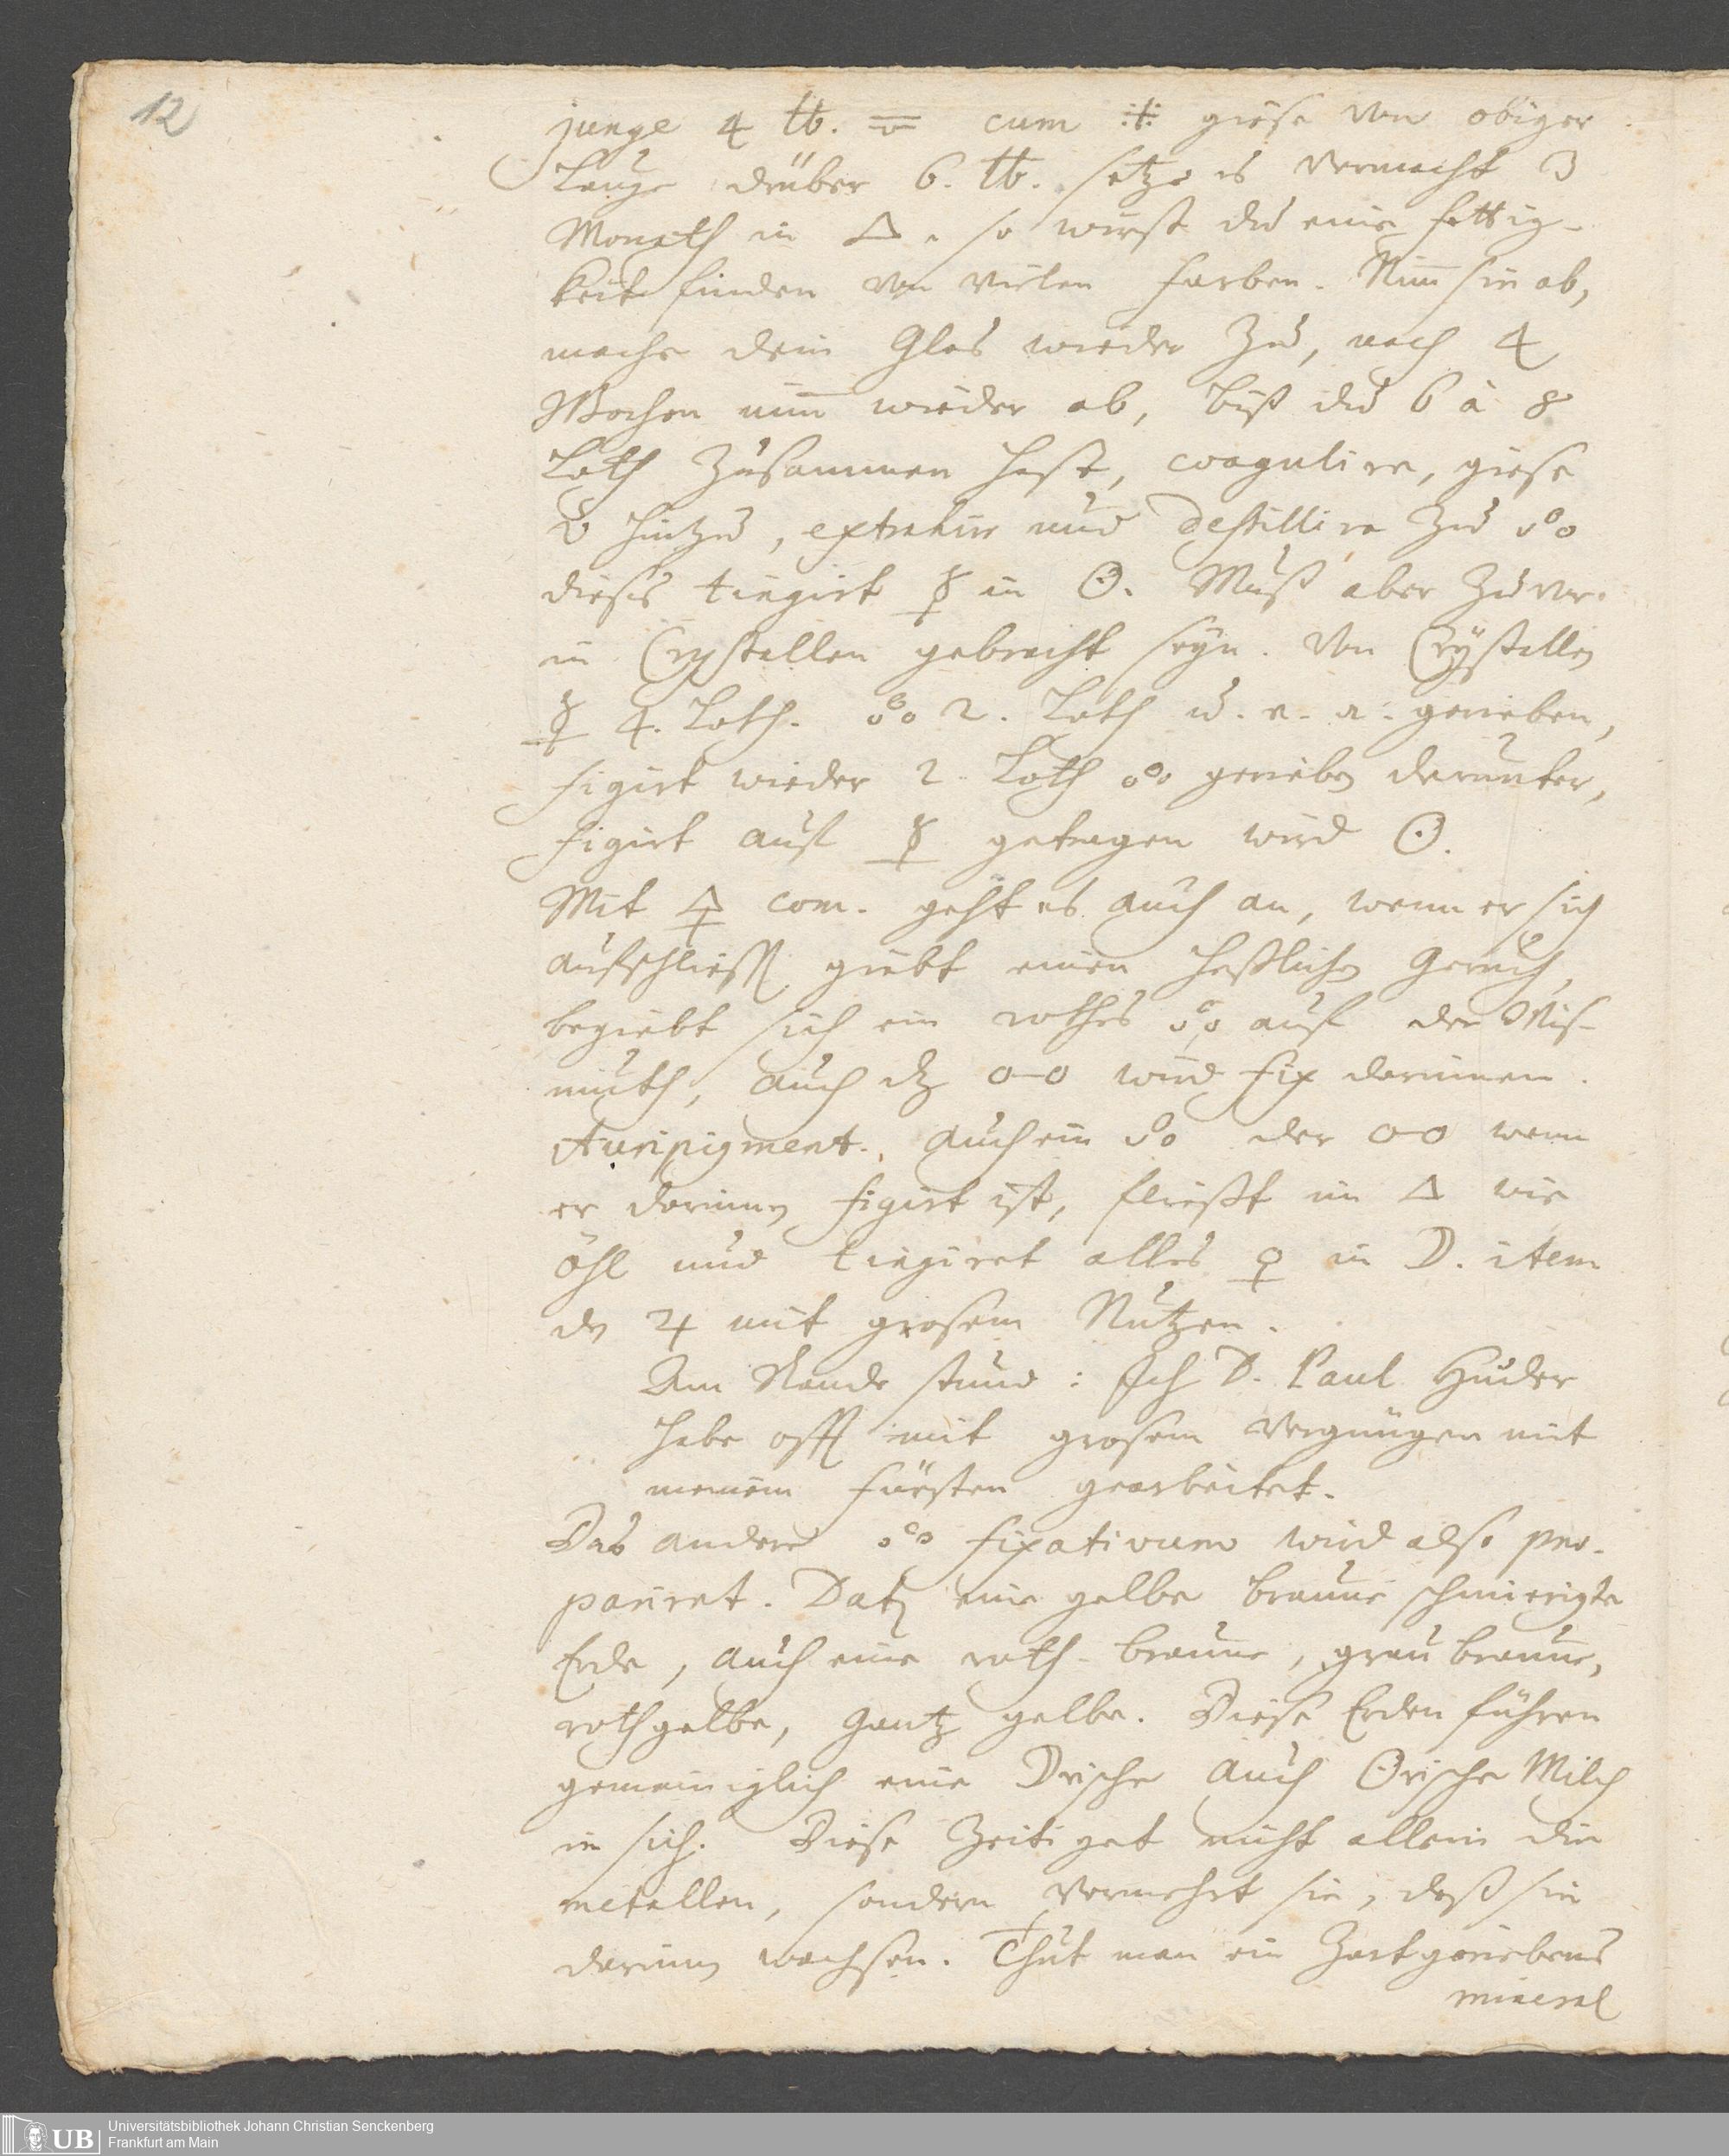 12
junge 4 ℔. cum giese von obiger
Lauge drüber 6. ℔. setze es vermacht 3
Monath in 🜂. so wirst du eine fettig-
keit finden von vielen Farben. Nim̅ sie ab,
mache dein Glas wieder zu, nach 4
Wochen nim̅ wieder ab, biß du 6 à 8
Loth zusammen hast, coagulire, giese
hinzu, extrahir und destillire zu o°o
dieses tingirt ☿ in ☉. Muß aber zuvor
in Crystallen gebracht seyn. Von Crystallen
☿ 4. Loth. o°o 2. Loth u. e. a. gerieben,
figirt wieder 2. Loth o°o gerieben darunter,
figirt auf ☿ getragen wird ☉.
Mit 🜍 com. geht es auch an, wenn er sich
aufschliest giebt einen heßlichen Geruch,
begiebt sich ein rothes o°o auf der Wis-
muth, auch dz o-o wird fix darinnen.
Auripigment. auch ein o°o der oo wenn
er darinnen figirt ist, fliest im 🜂 wie
öhl und tingiret alles ♀ in ☽. item
den ♃ mit grosem Nutzen.
Am Rande stund: Ich D. Paul Huder
habe offt mit grosem Vergnügen mit
meinem Fürsten gearbeitet.
Das andere o°o fixativum wird also prae-
pariret. Datz eine gelbe braune schmierigte
Erde, auch eine roth-braune, graubraune,
rothgelbe, gantz gelbe. Diese Erden führen
gemeiniglich eine ☽rische auch ☉rische Milch
in sich. Diese zeitiget nicht allein die
metallen, sondern vermehrt sie, daß sie
darinnen wachsen. Thut man ein Zartgeriebenes
mineral
UB Universitätsbibliothek Johann Christian Senckenberg
Frankfurt am Main